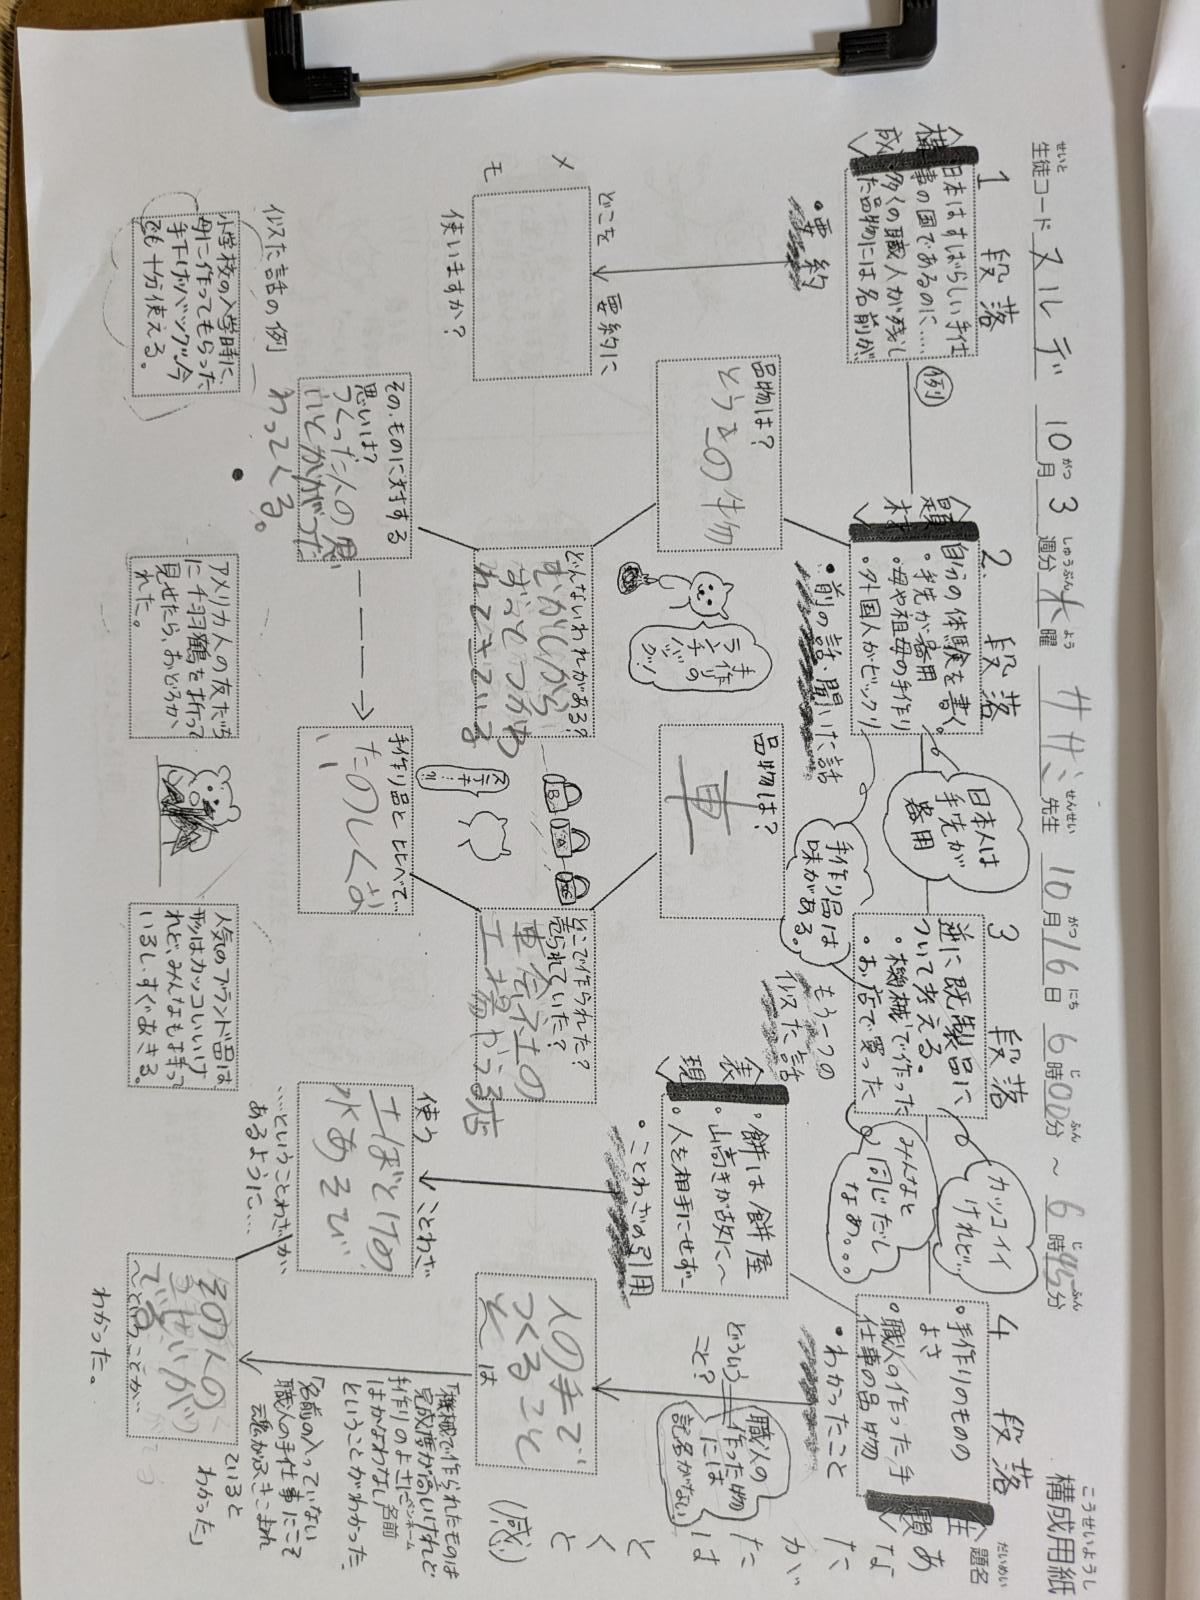 構成用紙
こうせいようし
せいと
生徒コード ヌルデ 10月 3週分 水曜 ササミ先生 10月16日 6時00分～6時45分
がつ しゅうぶん よう せんせい がつ にち じ ふん じ ふん
だいめい
題名
あなたがたはとくと
(感)
1 段落
〈構成〉
・日本はすばらしい手仕
事の国であるのに……
・多くの職人が残し
た品物には名前が
・要約
どこを要約に
使いますか？
メモ
似た話の例
小学校の入学時に、
母に作ってもらった
手下げバック。今
でも十分使える。
例
2 段落
〈題材〉
自分の体験を書く。
・手先が器用
・母や祖母の手作り
・外国人がビックリ
・前の話・聞いた話
日本人は
手先が
器用
手作り品は
味がある。
品物は？
とうきの物
どんないわれがある？
むかしから
ずっとつかわ
れてきている
そのものに対する
思いは？
つくった人の思
いとかがつた
わってくる。
手作りの
ランチ
バック！
アメリカ人の友だち
に千羽鶴を折って
見せたら、おどろか
れた。
3 段落
逆に既製品に
ついて考える。
・機械で作った
・お店で買った
もう一つの
似た話
カッコイイ
けれど…
みんなと
同じだし
なあ。。。
品物は？
車
どこで作られた？
売られていた？
車会社の
工場やうる店
手作り品とくらべて…
たのしくな
い
ステキ…?!
人気のブランド品は
形はカッコいいけ
れど、みんなも持って
いるし、すぐあきる。
〈表現〉
・餅は餅屋
・山高きが故に～
・人を相手にせず～
・ことわざの引用
使う ことわざ
土ぼとけの
水あそび
…ということわざが
あるように…
4 段落
〈主題〉
・手作りのものの
よさ
・職人の作った手
仕事の品物
・わかったこと
どういう
こと？
職人の
作った物
には
記名がない
人の手で
つくること
は
その人の
～ということが…
わかった。
「機械で作られたものは
完成度が高いけれど
手作りのよさには
かなわない
ということがわかった。
「名前の入っていない
職人の手仕事にこそ
魂がふきこまれ
ていると
わかった」